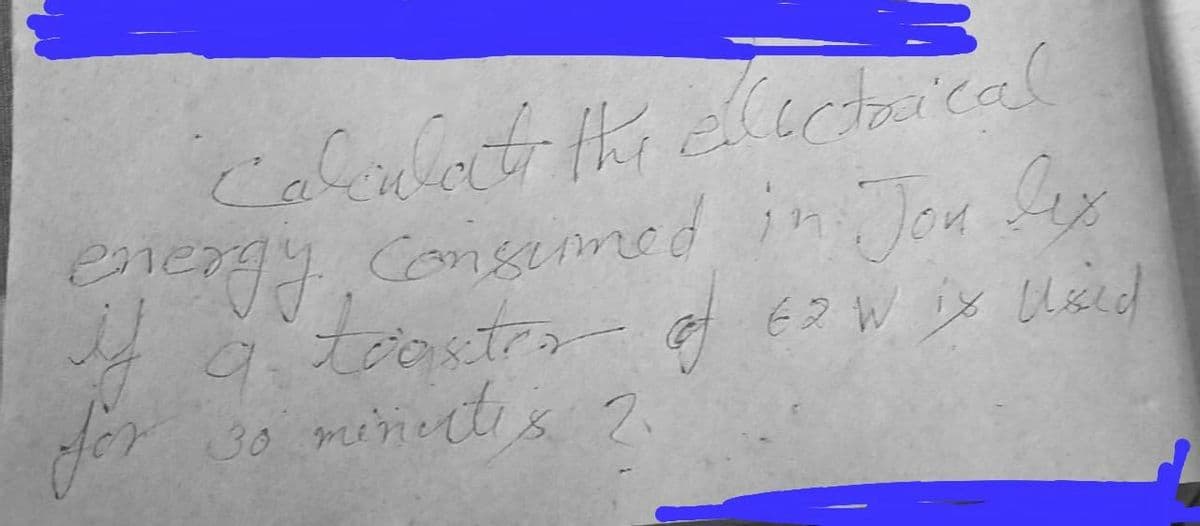 Calculate the electrical
energy consumed in Joules
if a toaster of 62 W is Used
for 30 minutes ?